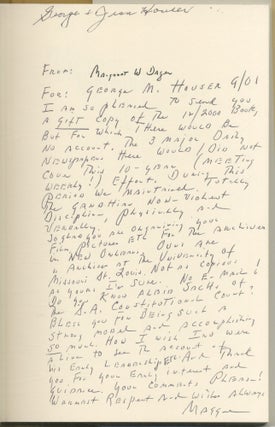 George & Jean Houser
From: Margaret W Dagen
For: George M. Houser 9/01
I am so pleased to send you
a gift copy of the 12/2000 Book,
But for which there would be
no account. The 3 major daily
newspapers here would/did not
cover this 10-year (meeting
weekly!) effort. During this
period we maintained totally
the Gandhian Non-Violent
Discipline, physically and
verbally.
So glad you are organizing your
Film, pictures etc for the archives
in New Orleans. Ours are
in archives at the University of
Missouri St. Louis. Not as copious
as yours I'm sure. No E-mail!
Do you know Albie Sachs of
the S.A. Constitutional Court?
Bless you for being such a
strong model and accomplishing
so much. How I wish Irv were
alive to see the account of
his early leadership etc. And thank
you for your early interest and
guidance. Your comments please!
Warmest Respect and Wishes Always
Maggie